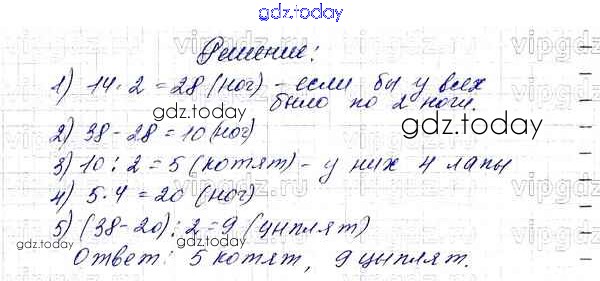 gdz.today
Решение:
1) 14·2=28 (ног) - если бы у всех
было по 2 ноги.
gdz.today
gdz.today
2) 38-28=10 (ног)
3) 10:2=5 (котят) - у них 4 лапы
4) 5·4=20 (ног)
5) (38-20):2=9 (цыплят)
gdz.today
gdz.today
Ответ: 5 котят, 9 цыплят.